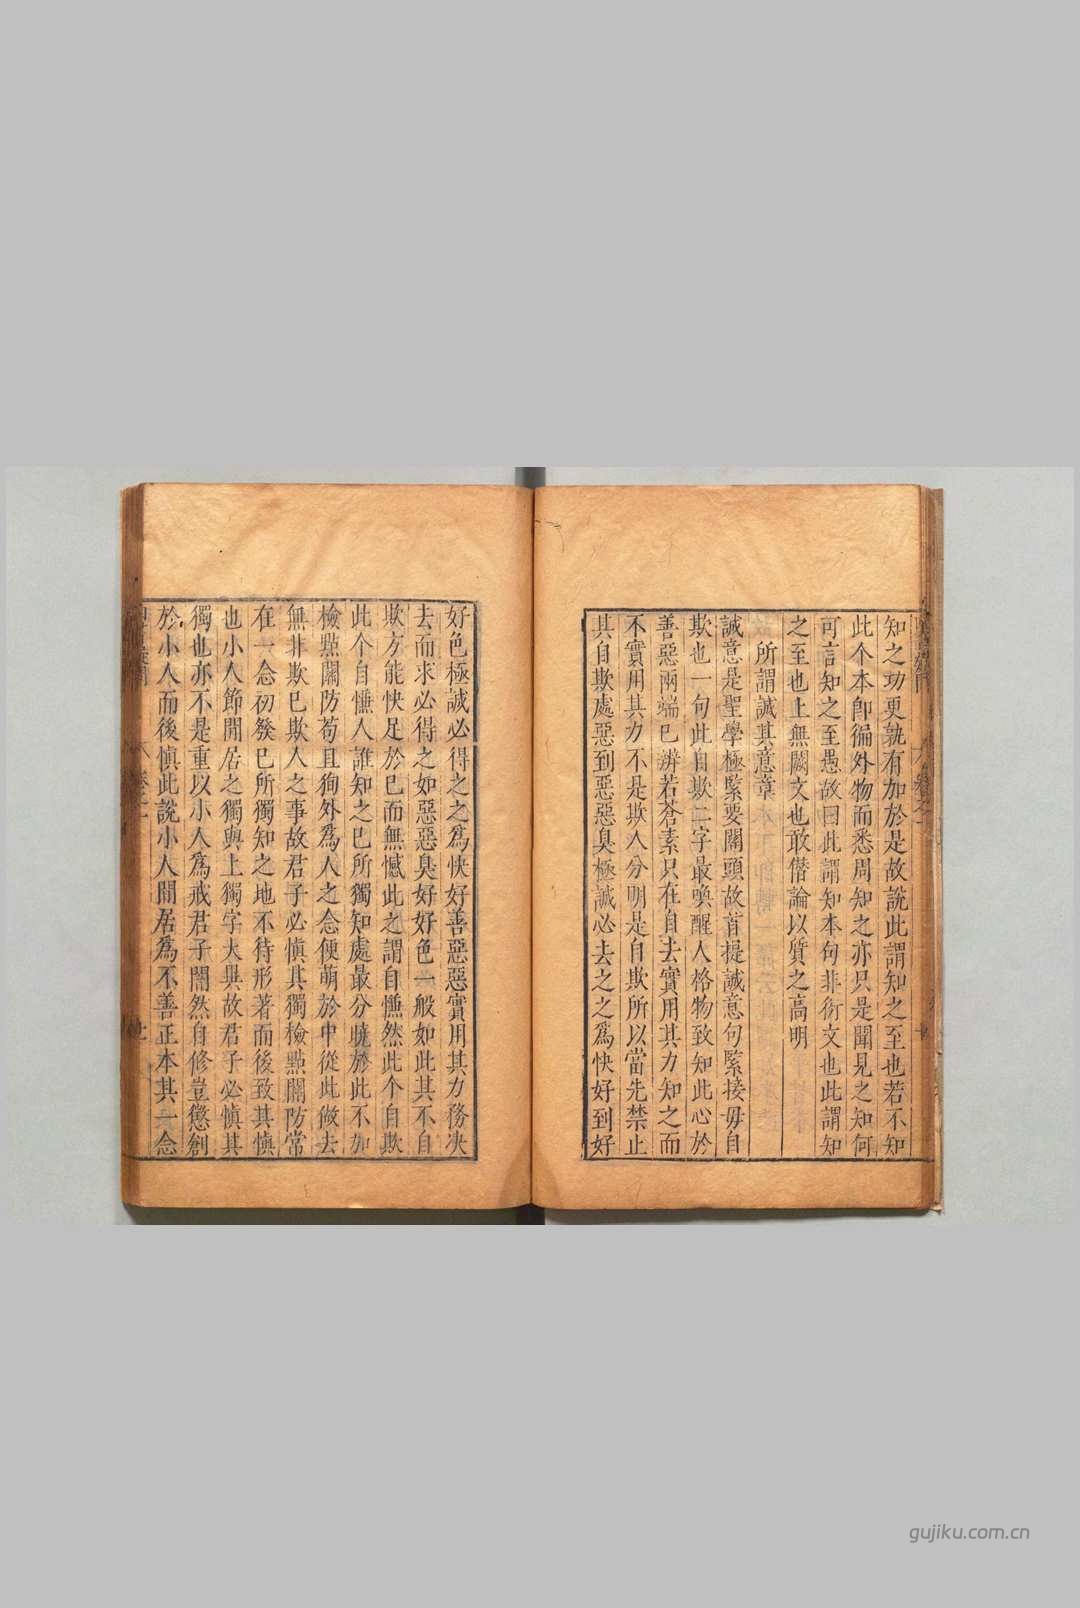 知之功更孰有加於是故說此謂知之至也若不知
此个本卽徧外物而悉周知之亦只是聞見之知何
可言知之至愚故曰此謂知本句非衍文也此謂知
之至也上無闕文也敢僭論以質之高明
所謂誠其意章
誠意是聖學極緊要關頭故首提誠意句緊接毋自
欺也一句此自欺二字最喚醒人格物致知此心於
善惡兩端已辨若蒼素只在自去實用其力知之而
不實用其力不是欺人分明是自欺所以當先禁止
其自欺處惡到惡惡臭極誠必去之之爲快好到好
好色極誠必得之之爲快好善惡惡實用其力務决
去而求必得之如惡惡臭好好色一般如此其不自
欺方能快足於已而無憾此之謂自慊然此个自欺
此个自慊人誰知之已所獨知處最分曉於此不加
檢點關防苟且徇外爲人之念便萌於中從此做去
無非欺已欺人之事故君子必慎其獨檢點關防常
在一念初發已所獨知之地不待形著而後致其慎
也小人節閒居之獨與上獨字大異故君子必慎其
獨也亦不是重以小人爲戒君子闇然自修豈懲創
於小人而後慎此說小人閒居爲不善正本其一念
gujiku.com.cn